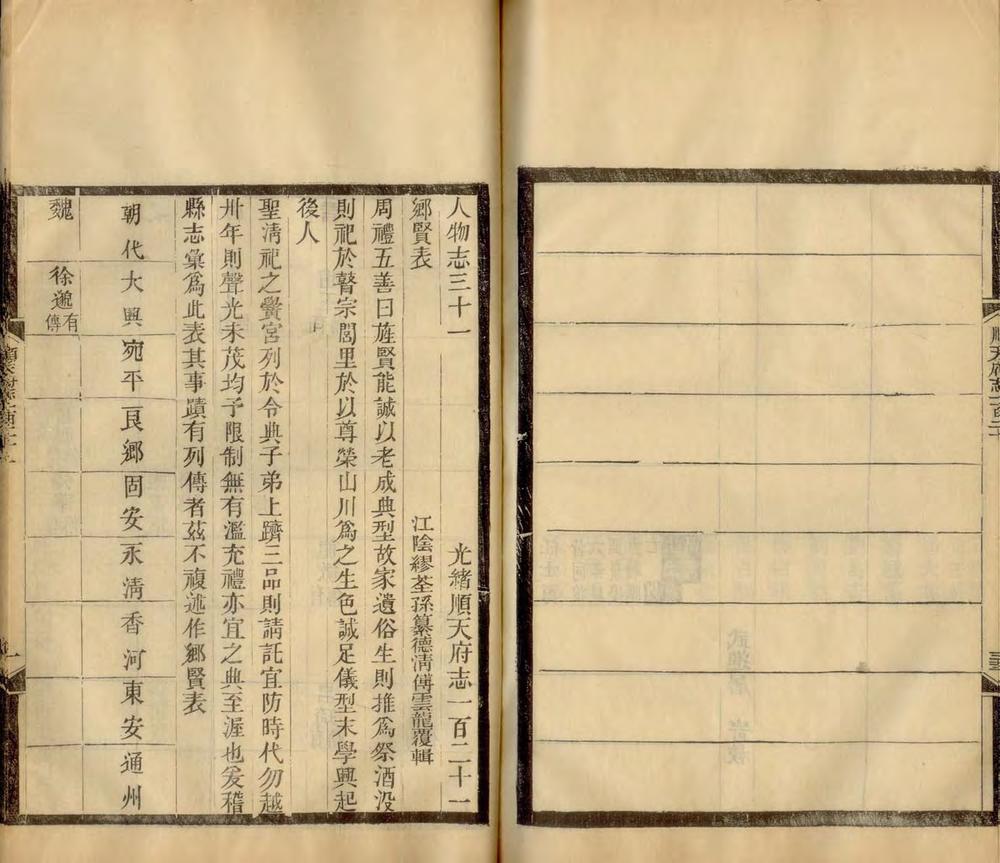 順天府志一百二十
人物志三十一 光緒順天府志一百二十一
鄉賢表 江陰繆荃孫纂德清傅雲龍覆輯
周禮五善曰旌賢能誠以老成典型故家遺俗生則推爲祭酒沒
則祀於瞽宗閭里於以尊榮山川爲之生色誠足儀型末學興起
後人
聖清祀之黌宮列於令典子弟上躋三品則請託宜防時代勿越
卅年則聲光未茂均予限制無有濫充禮亦宜之典至渥也爰稽
縣志彙爲此表其事蹟有列傳者茲不複述作鄉賢表
朝代 大興 宛平 良鄉 固安 永淸 香河 東安 通州
魏 徐邈有傳